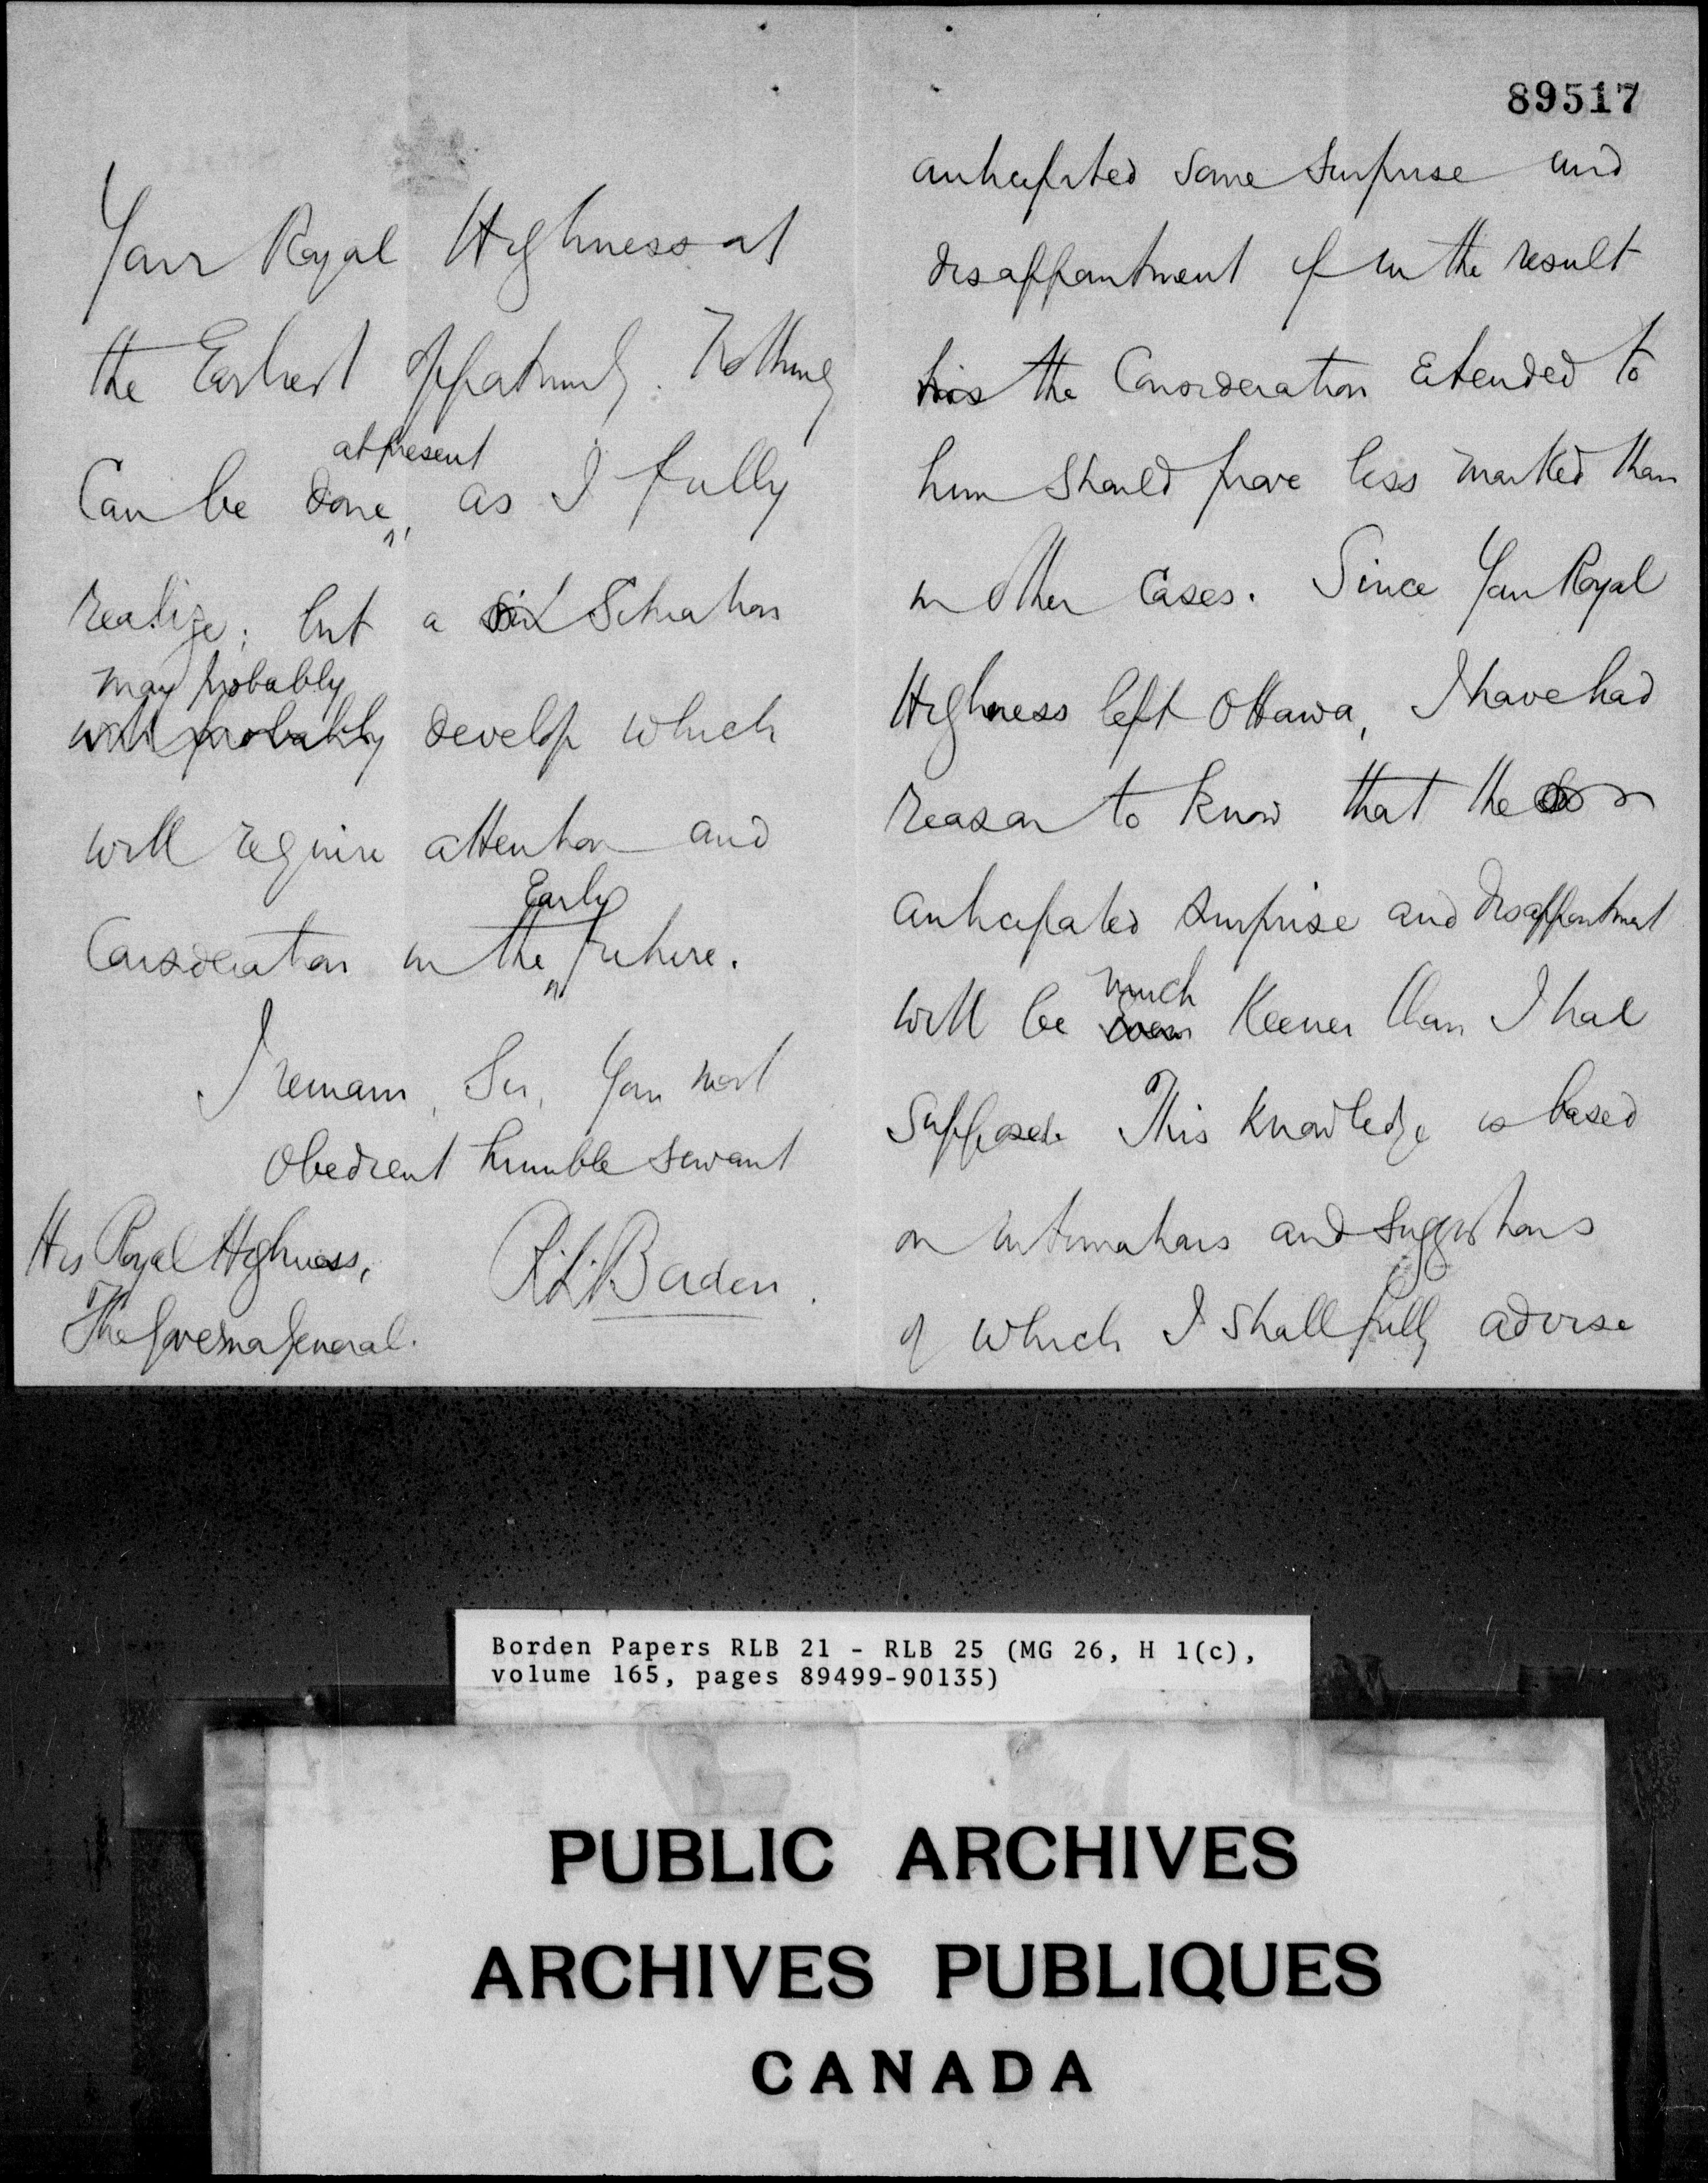 89517
anticipated some surprise and
disappointment if in the result
his the consideration extended to
him should prove less marked than
in other cases. Since Your Royal
Highness left Ottawa, I have had
reason to know that the
anticipated surprise and disappointment
will be much keener than I had
supposed. This knowledge is based
on intimations and suggestions
of which I shall fully advise
Your Royal Highness at
the Earliest opportunity. Nothing
at present
Can be done, as I fully
realize; but a sit Situation
may probably
will probably develop which
will require attention and
Early
Consideration in the future.
I remain, Sir, Your most
obedient humble servant
R.L. Borden.
His Royal Highness,
The Governor General.
Borden Papers RLB 21 - RLB 25 (MG 26, H 1(c),
volume 165, pages 89499-90135)
PUBLIC ARCHIVES
ARCHIVES PUBLIQUES
CANADA